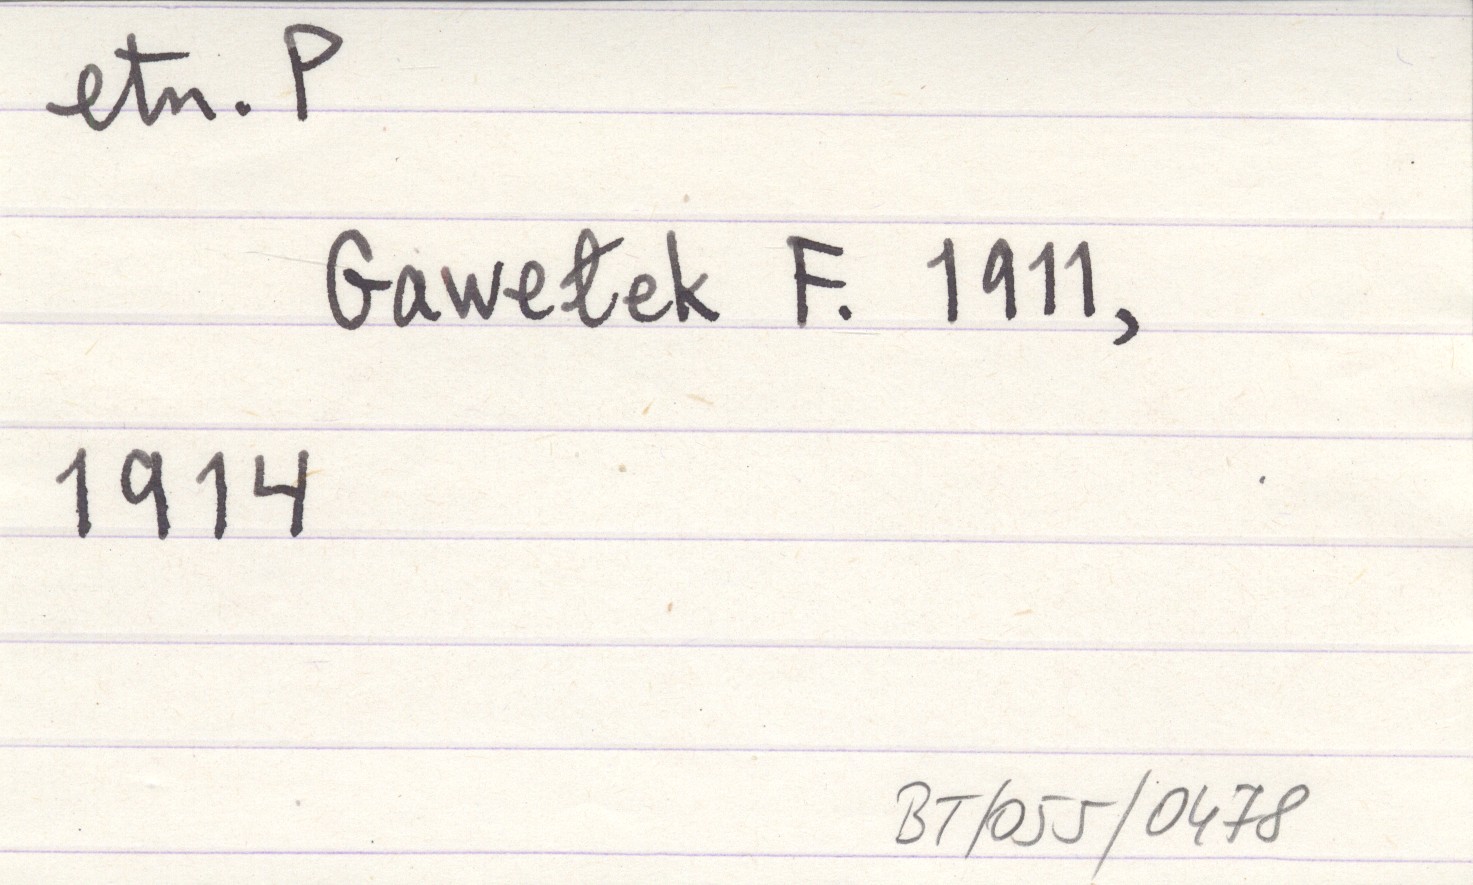 etn. P
Gawełek F. 1911,
1914
BT/055/0478